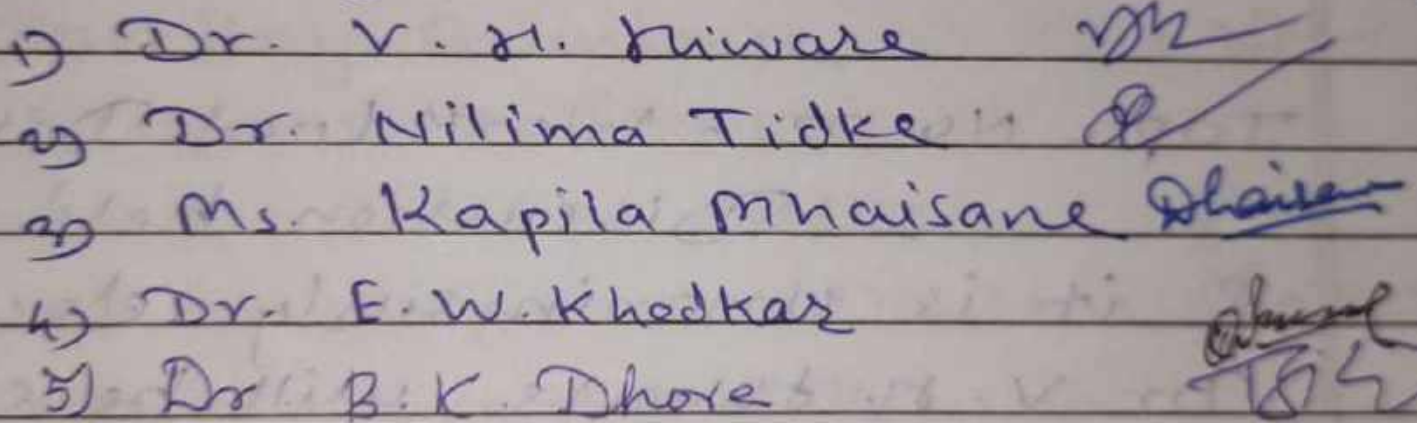 1) Dr. V. H. Hiware
2) Dr. Nilima Tidke
3) Ms. Kapila Mhaisane
4) Dr. E. W. Khedkar
5) Dr B. K. Dhore